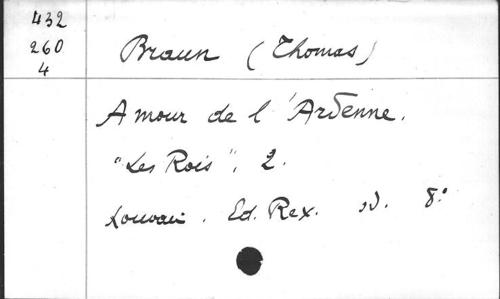 432
260
4
Braun (Thomas)
Amour de l'Ardenne.
"Les Rois", 2.
Louvain. Ed. Rex. sd. 8°